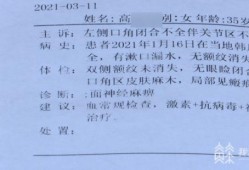 2021-03-11
姓名:高 别:女 年龄:35岁
主 诉: 左侧口角闭合不全伴关节区不
病 史: 患者2021年1月16日在当地韩
全，有漱口漏水，无额纹消失
体 检: 双侧额纹未消失，无眼睑闭合
口角区皮肤麻木，局部见瘢
诊 断: :面神经麻痹
建 议: 血常规检查，激素+抗病毒+
治疗.
处 置: